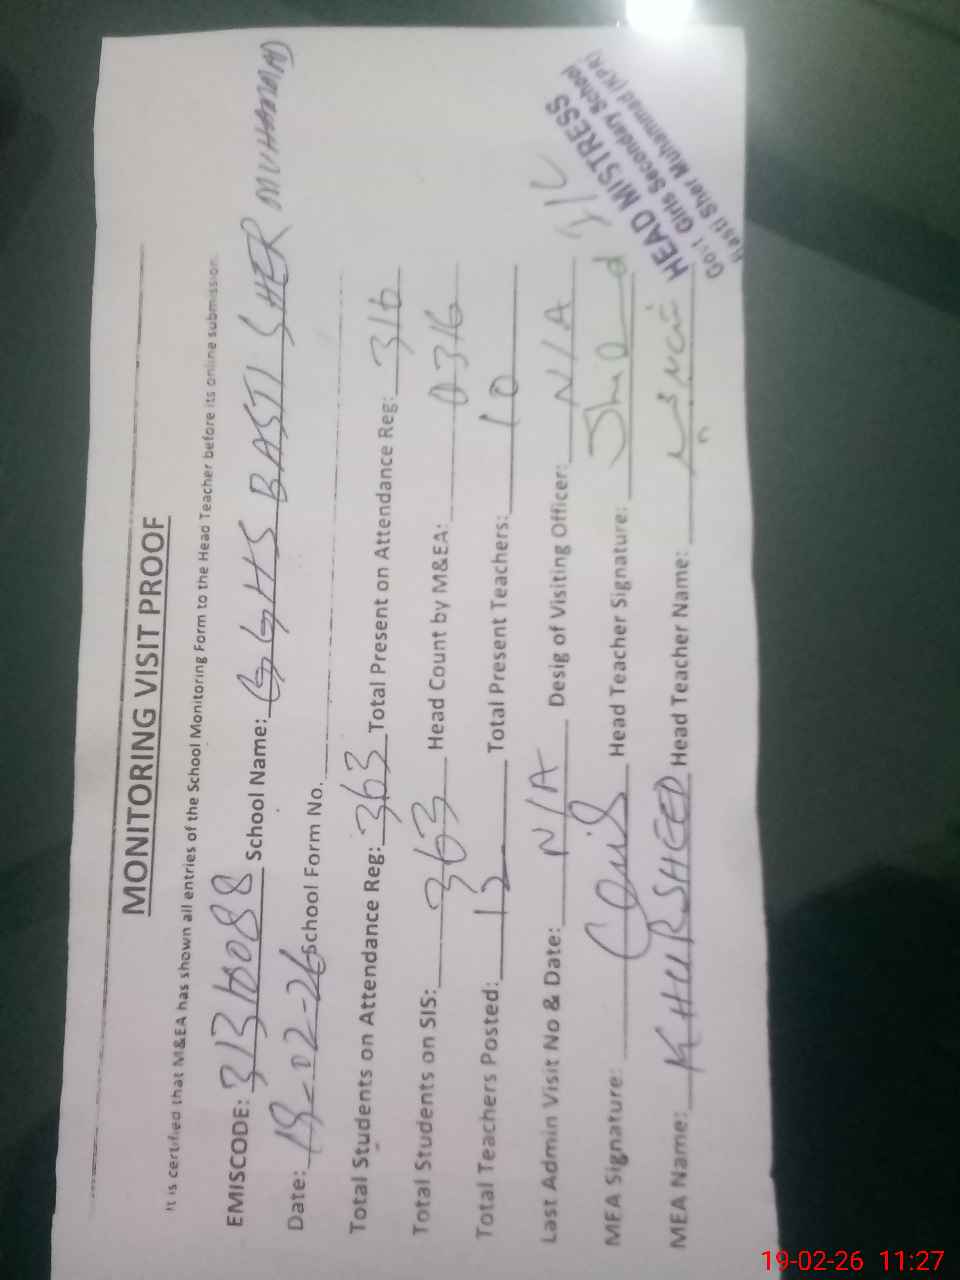 MONITORING VISIT PROOF
It is certified that M&EA has shown all entries of the School Monitoring Form to the Head Teacher before its online submission.
EMISCODE: 31310088 School Name: GGHS BASTI SHER MUHAMMAD
Date: 19-02-26 School Form No.
Total Students on Attendance Reg: 363 Total Present on Attendance Reg: 316
Total Students on SIS: 363 Head Count by M&EA: 0316
Total Teachers Posted: 12 Total Present Teachers: 10
Last Admin Visit No & Date: N/A Desig of Visiting Officer: N/A
MEA Signature: Head Teacher Signature:
MEA Name: KHURSHEED Head Teacher Name:
HEAD MISTRESS
Govt Girls Secondary School
Basti Sher Muhammad (KPR)
19-02-26 11:27